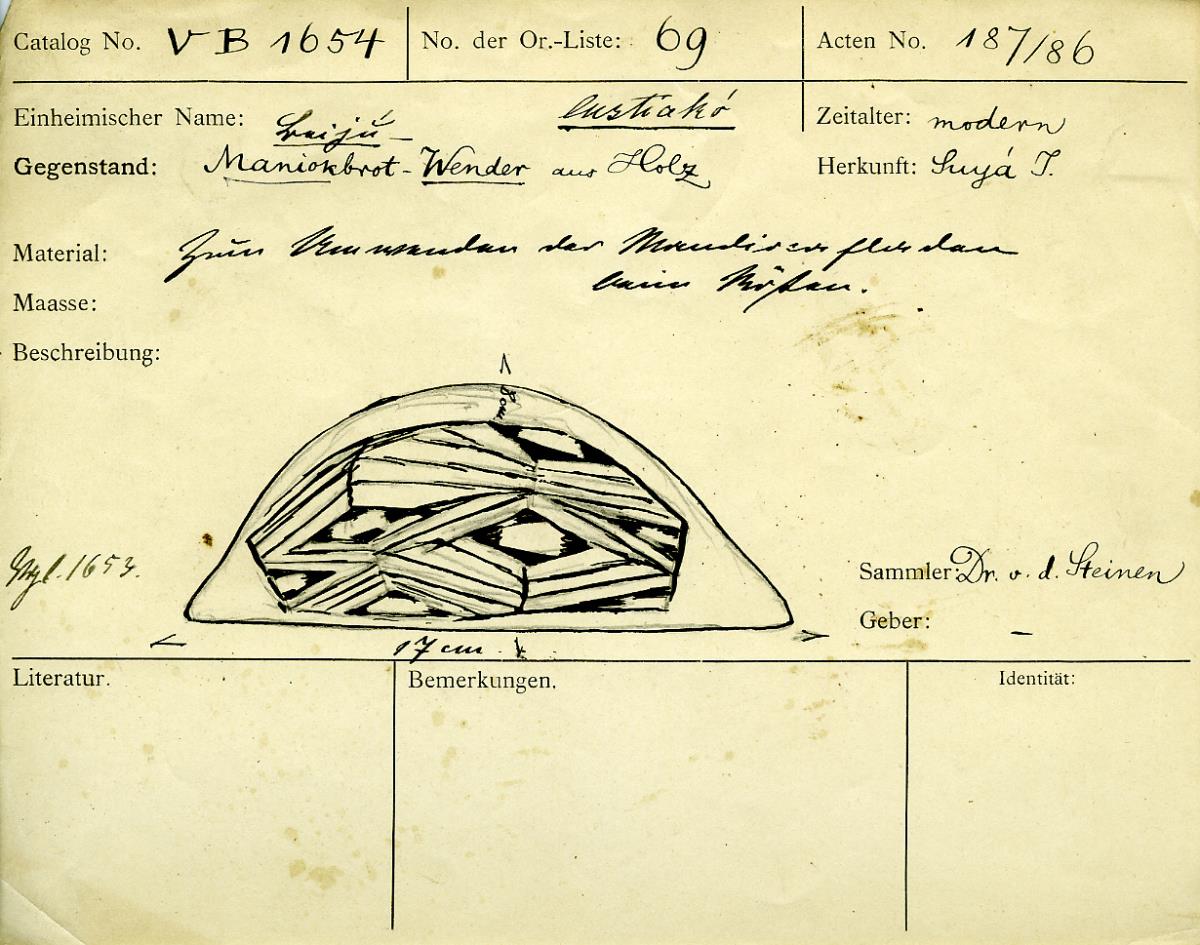 Catalog No. V B 1654 No. der Or.-Liste: 69 Acten No. 187/86
Einheimischer Name: Beijú Zeitalter: modern
Gegenstand: Maniokbrot-Wender aus Holz Herkunft: Suyá I.
Material: Zum Umwenden der
beim Rösten.
Maasse:
Beschreibung:
8 cm
Vgl. 1653.
Sammler: Dr. v. d. Steinen
Geber: –
17 cm
Literatur. Bemerkungen. Identität: